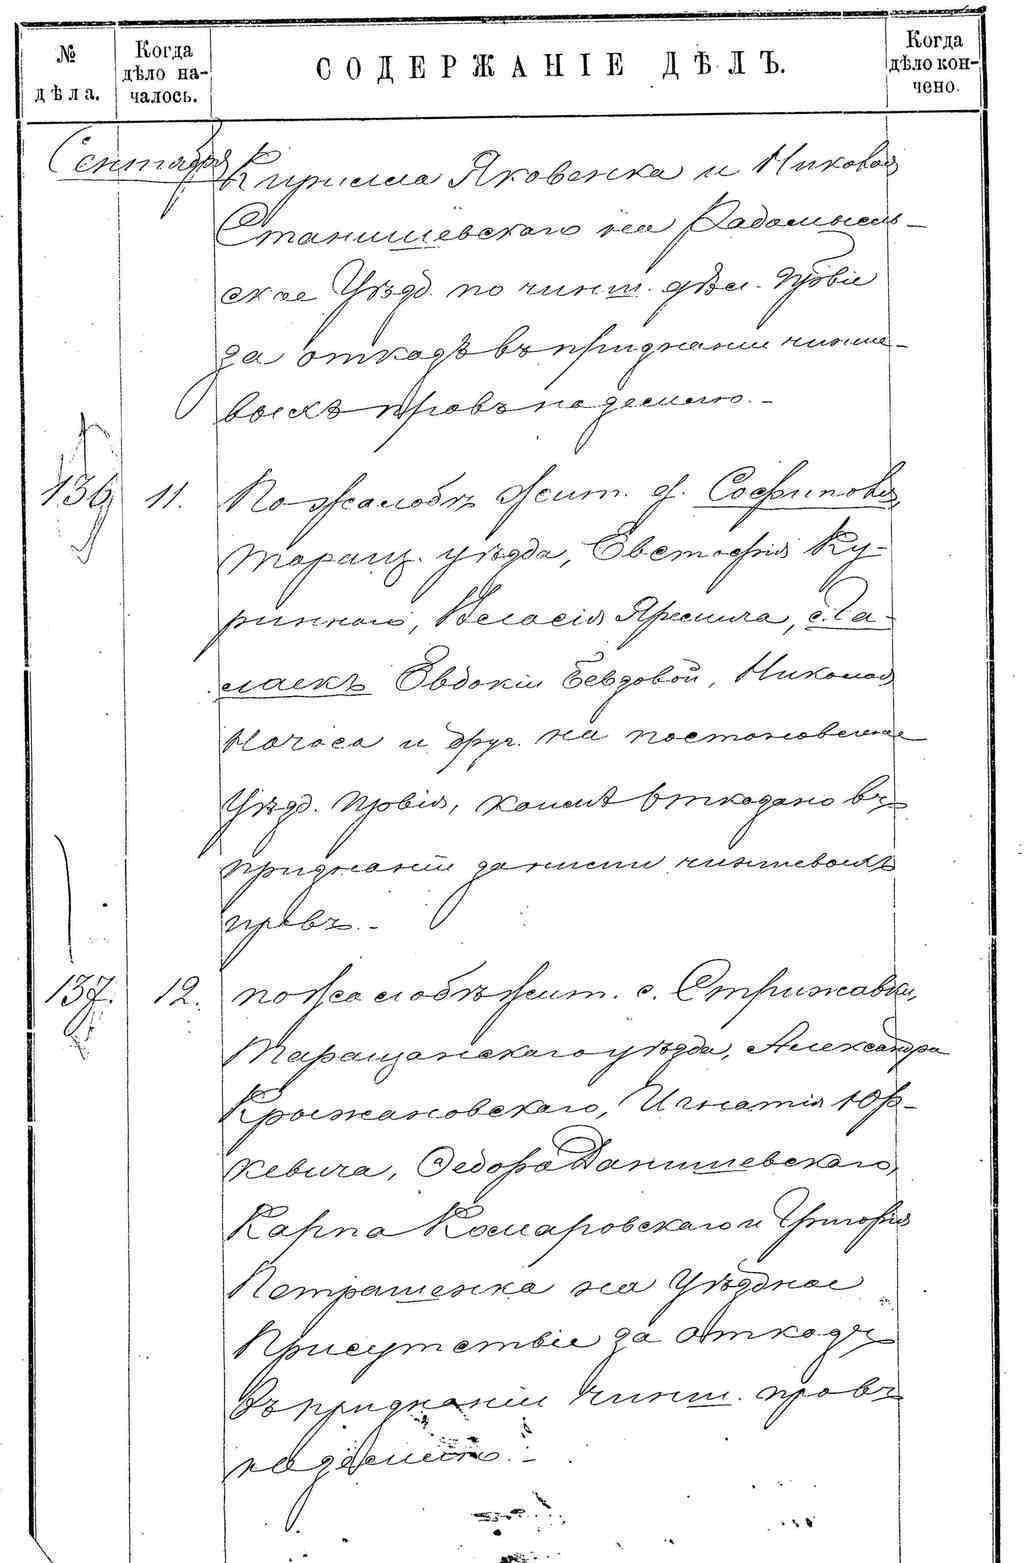 № дѣла.
Когда дѣло на-чалось.
СОДЕРЖАНІЕ ДѢЛЪ.
Когда дѣло кон-чено.
Сентября
Кирилла Яковенка и Николая
Станишевскаго на Радомысль-
ское Уѣзд. по чинш. дѣл. Пр̃віе
за отказъ въ признаніи чинше-
выхъ правъ на землю. -
136 11. По жалобѣ жит. д. Софиповки,
Таращ. уѣзда, Евстафія Ку-
риннаго, Власія Яремича, с. Та-
Евдокіи Бевзовой, Николая
и друг. на постановленіе
Уѣзд. Пр̃вія, коимъ отказано въ
признаніи за ними чиншевыхъ
правъ. -
137. 12. по жалобѣ жит. с. Стрижавки,
Таращанскаго уѣзда, Александра
Крыжановскаго, Игнатія Юр-
кевича, Ѳедора Данишевскаго,
Карпа Комаровскаго и Григорія
Петрашенка на Уѣздное
Присутствіе за отказъ
въ признаніи чинш. правъ
на землю. -